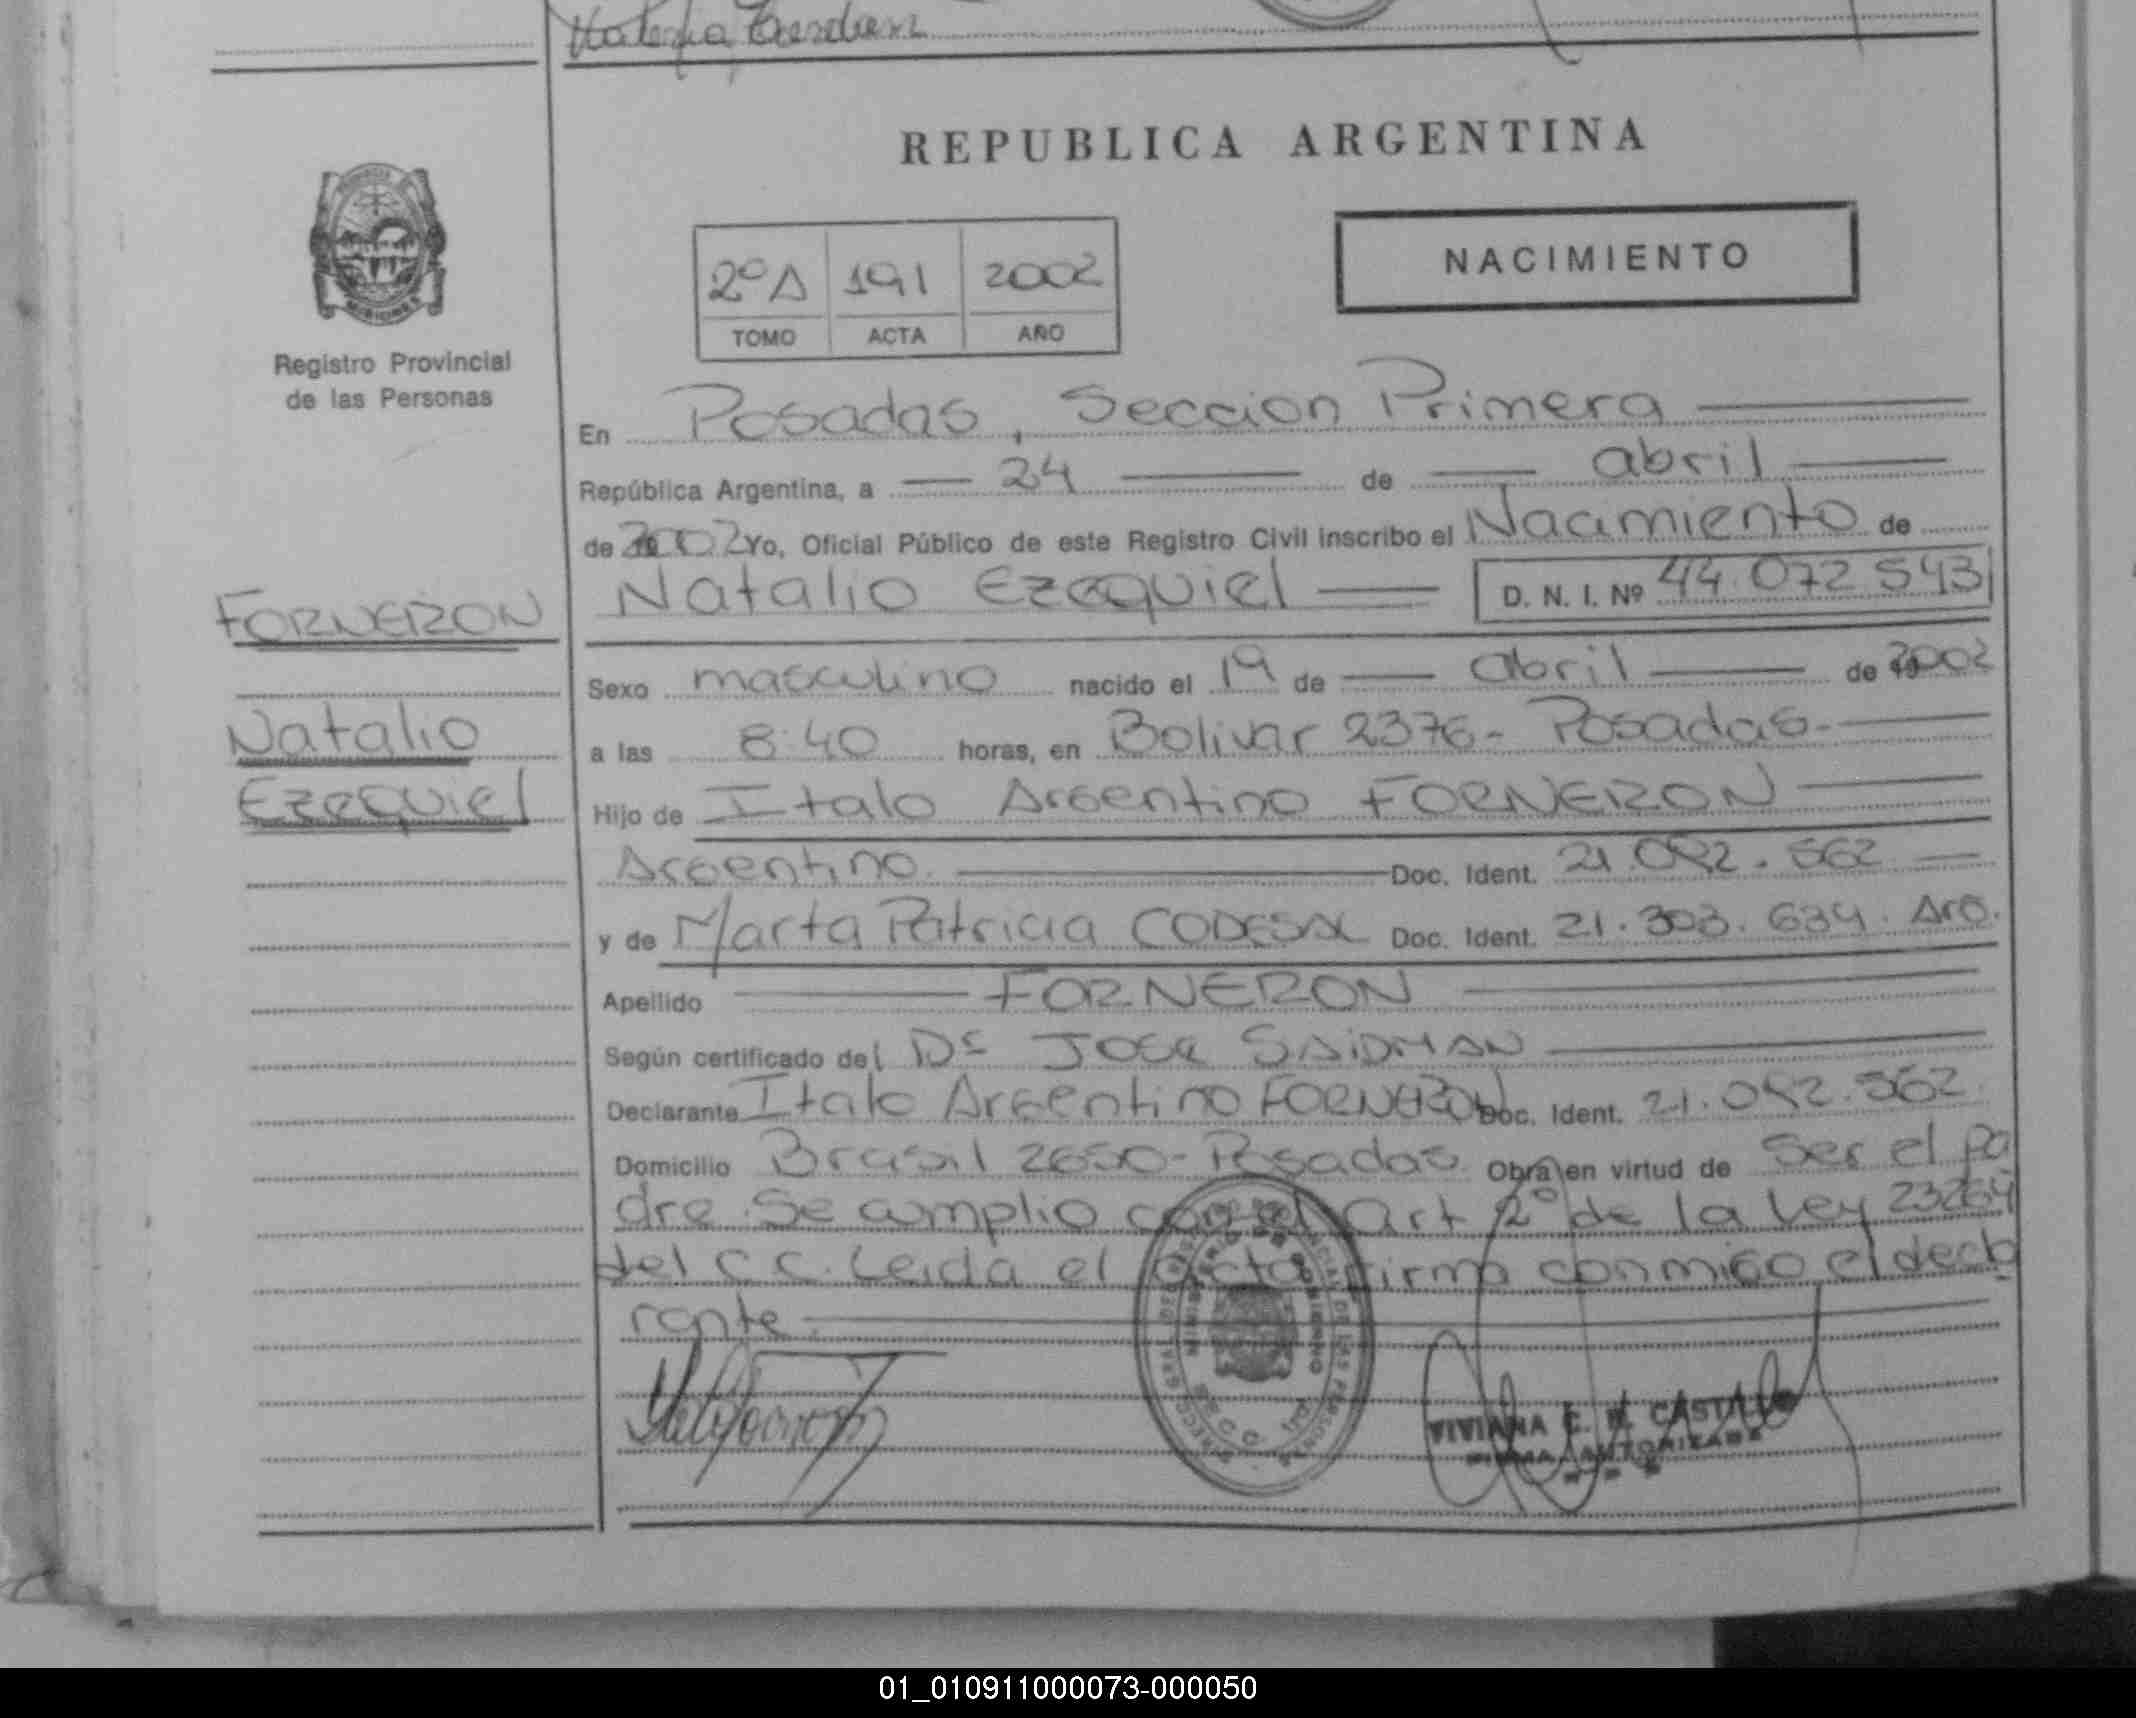 REPUBLICA ARGENTINA
NACIMIENTO
2º A 191 2002
TOMO ACTA AÑO
Registro Provincial
de las Personas
En Posadas, Seccion Primera
República Argentina, a 24 de abril
de 2002 Yo, Oficial Público de este Registro Civil inscribo el Nacimiento de
Natalio Ezequiel D. N. I. Nº 44.072 543
FORNERON
Natalio
Ezequiel
Sexo masculino nacido el 19 de abril de 2002
a las 8:40 horas, en Bolivar 2376 - Posadas -
Hijo de Italo Argentino FORNERON
Argentino. Doc. Ident. 21.092.562
y de Marta Patricia CODESAL Doc. Ident. 21.303.634. Arg.
Apellido FORNERON
Según certificado del Dr JOSE SAIDMAN
Declarante Italo Argentino FORNERON Doc. Ident. 21.092.562.
Domicilio Brasil 2650 - Posadas. Obra en virtud de Ser el pa
dre. Se cumplio con el Art 2º de la Ley 23264
del C C. Leida el acta firma conmigo el decla
rante.
VIVIANA E. CASTILLO
FIRMA AUTORIZADA
01_010911000073-000050